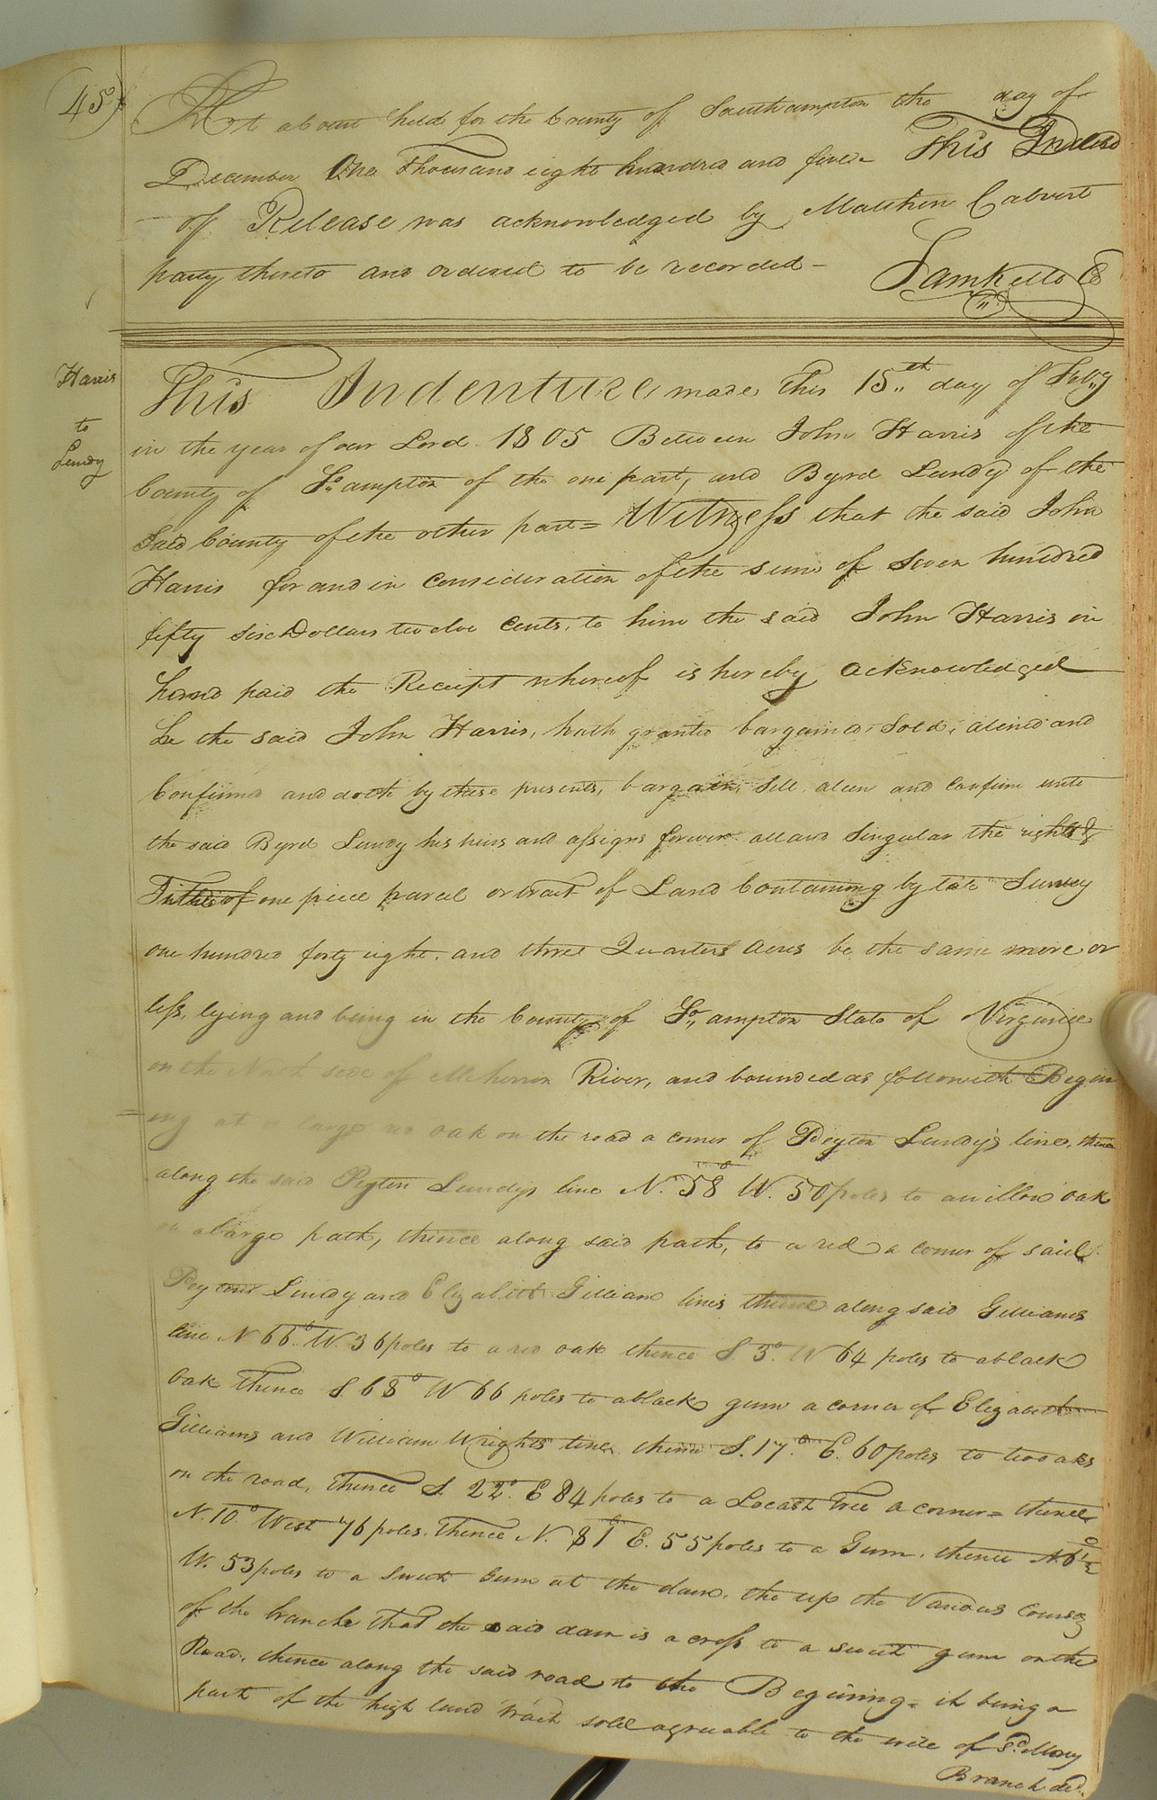 (45)
At a Court held for the County of Southampton the day of
December One thousand eight hundred and five This Indend
of Release was acknowledged by Matthew Calvert
party thereto and ordered to be recorded -
Sam Kello C
Harris
to
Lundy
This Indenture made this 15th day of Feby
in the year of our Lord 1805 Between John Harris of the
County of So.ampton of the one part, and Byrd Lundy of the
said County of the other part = Witness that the said John
Harris for and in Consideration of the sum of Seven hundred
fifty six Dollars twelve Cents, to him the said John Harris in
hand paid the Receipt whereof is hereby acknowledged
he the said John Harris, hath granted bargained, Sold, aliened and
Confirmed and doth by these presents, bargain, Sell, alien and Confirm unto
the said Byrd Lundy his heirs and assigns forever all and Singular the rights &
Titles of one piece parcel or tract of Land Containing by late Survey
one hundred forty eight and three Quarters acres be the same more or
less, lying and being in the County of So.ampton State of Virginia
on the North side of Meherrin River, and bounded as followeth Begin
ing at a large red oak on the road a corner of Peyton Lundy's line, thence
along the said Peyton Lundys line N. 58° W. 50 poles to a willow oak
on a large path, thence along said path, to a red a corner of said
Peyton Lundy and Elizabeth Gilliam lines thence along said Gilliams
line N 66° W. 36 poles to a red oak thence S. 3° W 64 poles to a black
oak thence S 68° W 66 poles to a black gum a corner of Elizabeth
Gilliams and William Wrights line thence S. 17° E. 60 poles to two oaks
on the road, thence S. 22° E 84 poles to a Locast tree a corner = thence
N. 10° West 76 poles, thence N. 81° E. 55 poles to a Gum, thence N 6½°
W. 53 poles to a Sweet Gum at the dam, the up the Various Courses
of the branch that the said dam is a cross to a sweet gum on the
Road, thence along the said road to the Begining = it being a
part of the high land tract sold agreeable to the will of Sd. Mary
Branch decd.